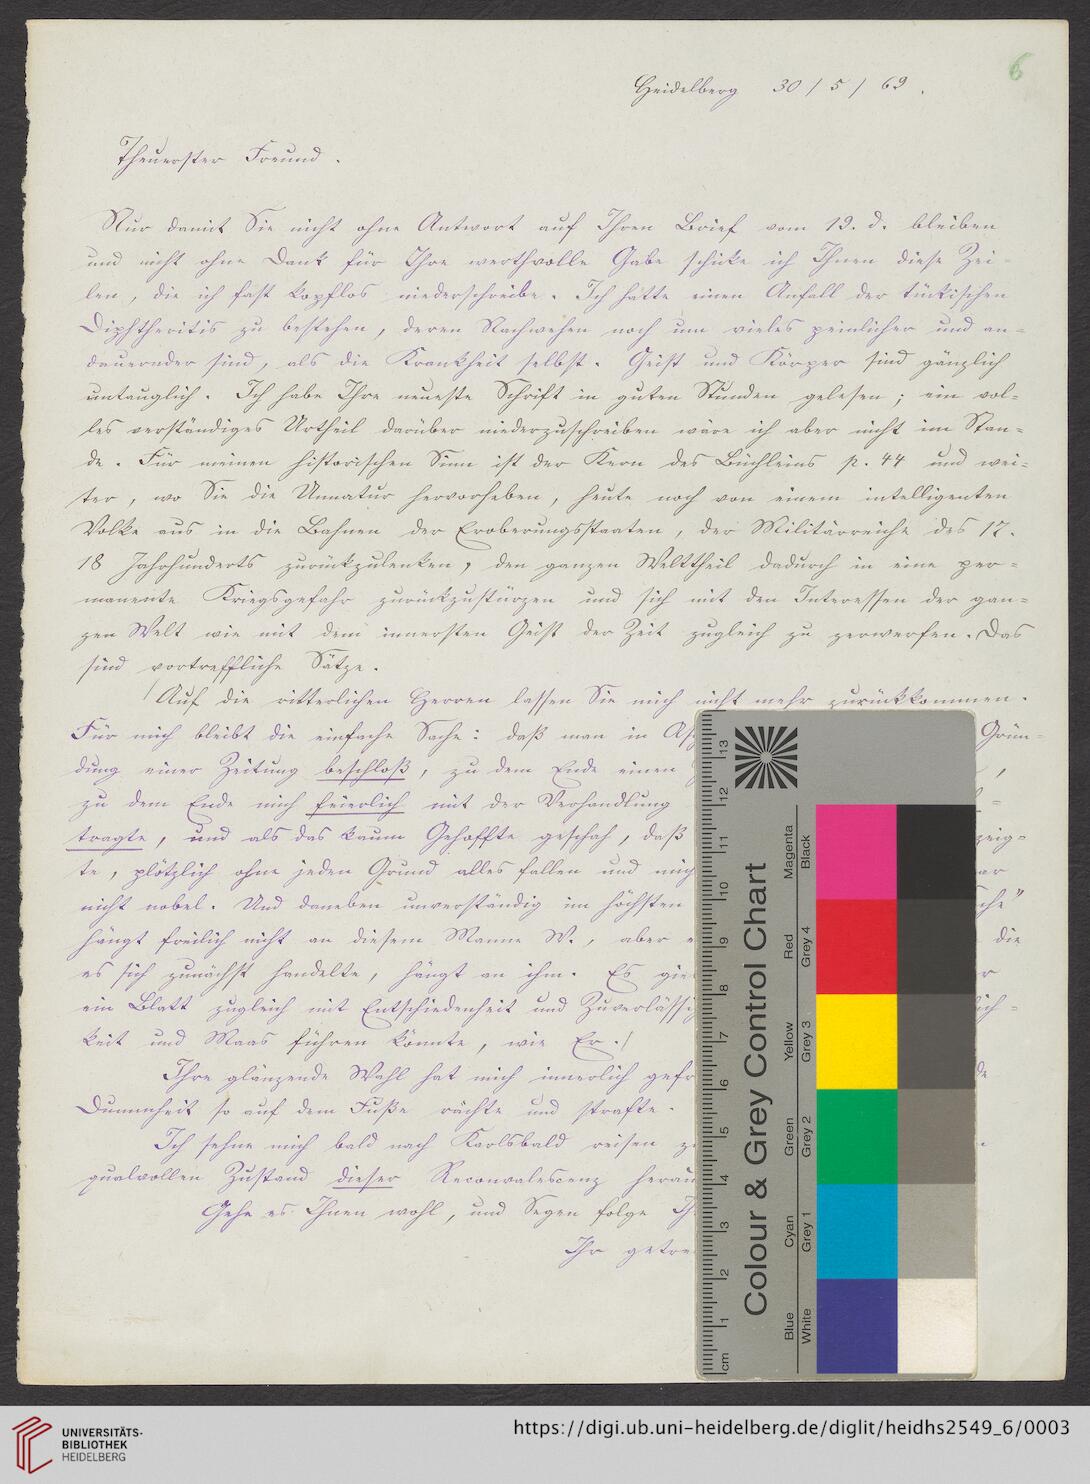 6
Heidelberg 30/5/69.
Theuerster Freund.
Nur damit Sie nicht ohne Antwort auf Ihren Brief vom 19. d. bleiben
und nicht ohne Dank für Ihre werthvolle Gabe schicke ich Ihnen diese Zei-
len, die ich fast kopflos niederschreibe. Ich hatte einen Anfall der tückischen
Diphtheritis zu bestehen, deren Nachwehen noch um vieles peinlicher und an-
dauernder sind, als die Krankheit selbst. Geist und Körper sind gänzlich
untauglich. Ich habe Ihre neueste Schrift in guten Stunden gelesen; ein vol-
les verständiges Urtheil darüber niederzuschreiben wäre ich aber nicht im Stan-
de. Für meinen historischen Sinn ist der Kern des Büchleins p. 44 und wei-
ter, wo Sie die Unnatur hervorheben, heute noch von einem intelligenten
Volke aus in die Bahnen der Eroberungsstaaten, der Militärreiche des 17.
18 Jahrhunderts zurückzulenken, den ganzen Welttheil dadurch in eine per-
manente Kriegsgefahr zurückzustürzen und sich mit den Interessen der gan-
zen Welt wie mit dem innersten Geist der Zeit zugleich zu zerwerfen. Das
sind vortreffliche Sätze.
Auf die ritterlichen Herren lassen Sie mich nicht mehr zurückkommen.
Für mich bleibt die einfache Sache: daß man in Grün-
dung einer Zeitung beschloß, zu dem Ende einen
zu dem Ende mich feierlich mit der Verhandlung
tragte, und als das kaum Gehoffte geschah, daß zeig-
te, plötzlich ohne jeden Grund alles fallen und mich
nicht nobel. Und daneben unverständig im höchsten
hängt freilich nicht an diesem Manne W., aber die
es sich zunächst handelte, hängt an ihm. Es
ein Blatt zugleich mit Entschiedenheit und
keit und Maas führen könnte, wie Er.
Ihre glänzende Wahl hat mich innerlich
Dummheit so auf dem Fuße rächte und strafte.
Ich sehne mich bald nach Karlsbald reisen
qualvollen Zustand dieser Reconvalescenz
Gehe es Ihnen wohl, und Segen folge
Ihr
cm 1 2 3 4 5 6 7 8 9 10 11 12 13
Colour & Grey Control Chart
Blue Cyan Green Yellow Red Magenta
White Grey 1 Grey 2 Grey 3 Grey 4 Black
UNIVERSITÄTS-
BIBLIOTHEK
HEIDELBERG
https://digi.ub.uni-heidelberg.de/diglit/heidhs2549_6/0003